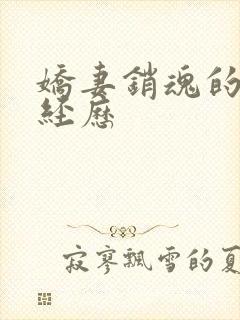 嬌妻銷魂的
經歷
寂寥飄雪的夏